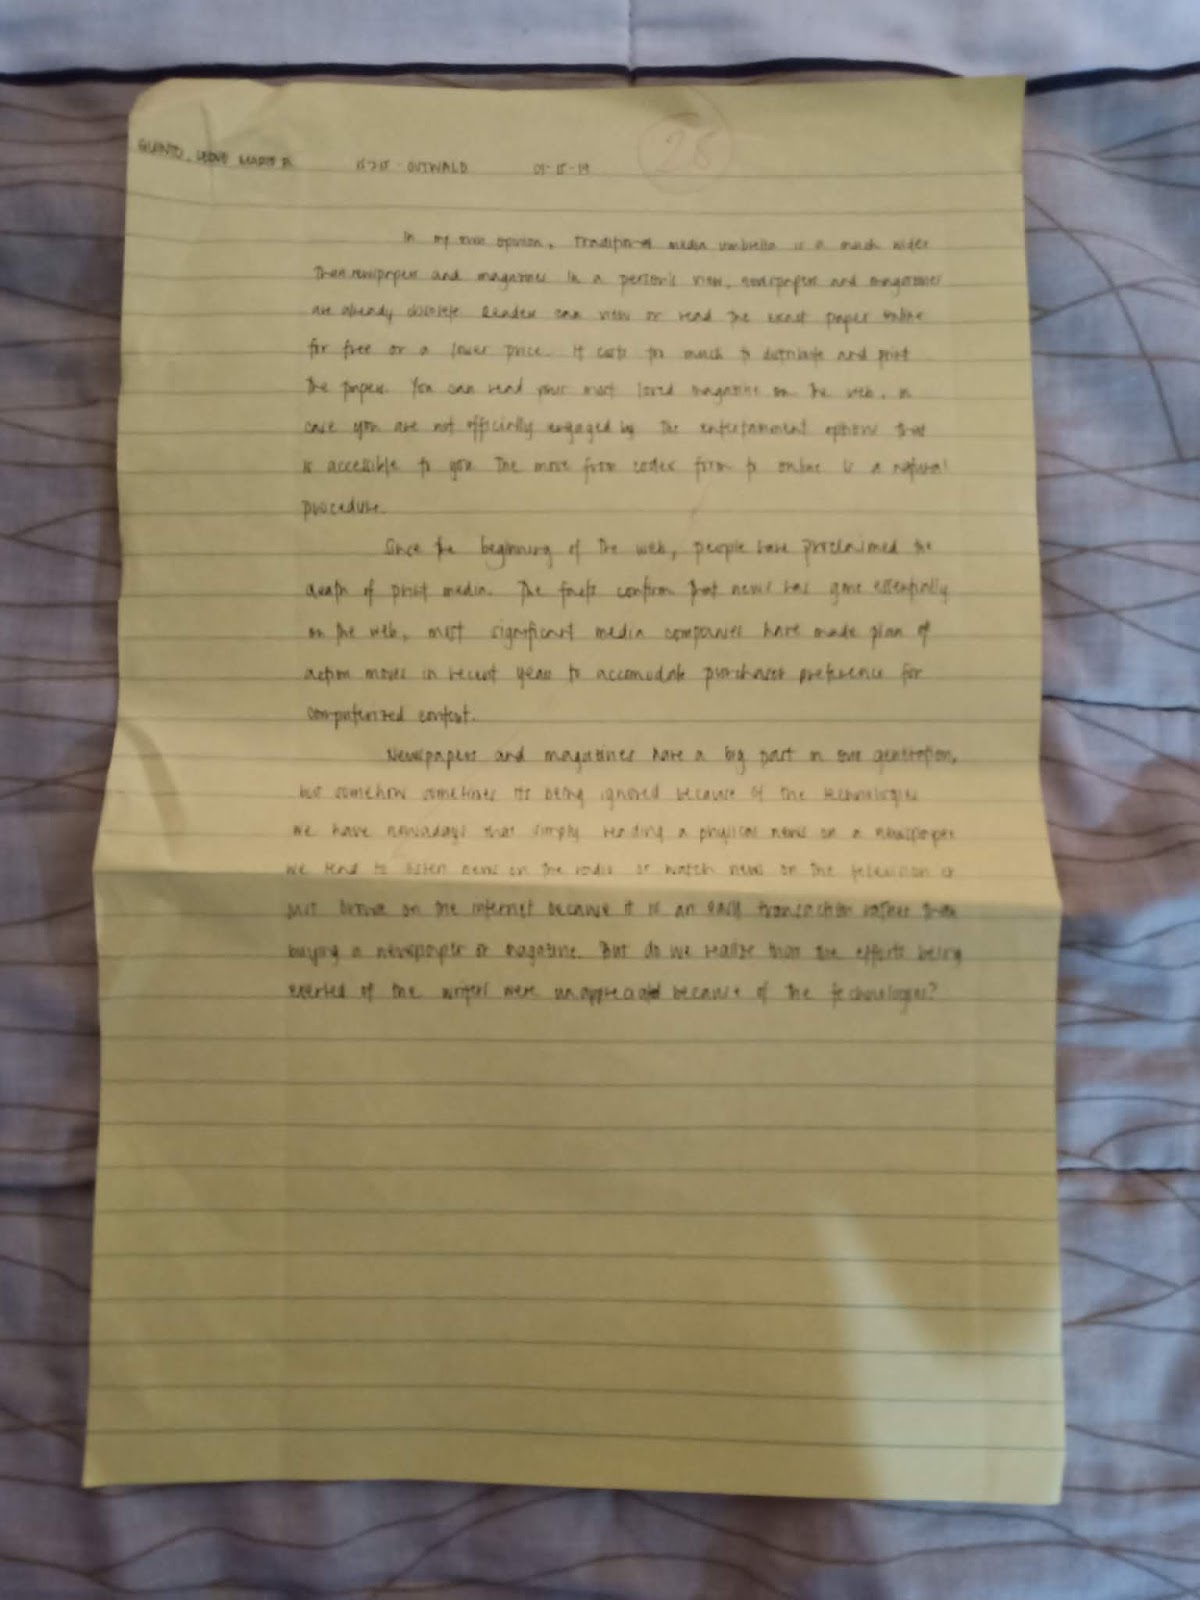 28
OSTWALD
In my own opinion, Traditional media umbrella is a much wider
Than newspapers and magazines In a person's view, newspapers and magazines
are already obsolete Reader can view or read the exact paper online
for free or a lower price. It costs too much to distribute and print
the paper. You can read your most loved magazine on the web, in
case you are not officially engaged by the entertainment options that
is accessible to you The move from codex form to online is a natural
procedure.
Since the beginning of the web, people have proclaimed the
death of print media. The facts confirm that news has gone essentially
on the web, most significant media companies have made plan of
action moves in recent year to accomodate purchaser preference for
computerized content.
Newspapers and magazines have a big part in our generation,
but somehow sometimes its being ignored because of the technologies
we have nowadays that simply reading a physical news on a newspaper
we tend to listen news on the radio or watch news on the television or
just browse on the internet because it is an easy transaction rather than
buying a newspaper or magazine. But do we realize that the efforts being
exerted of the writers were unappreciated because of the technologies?